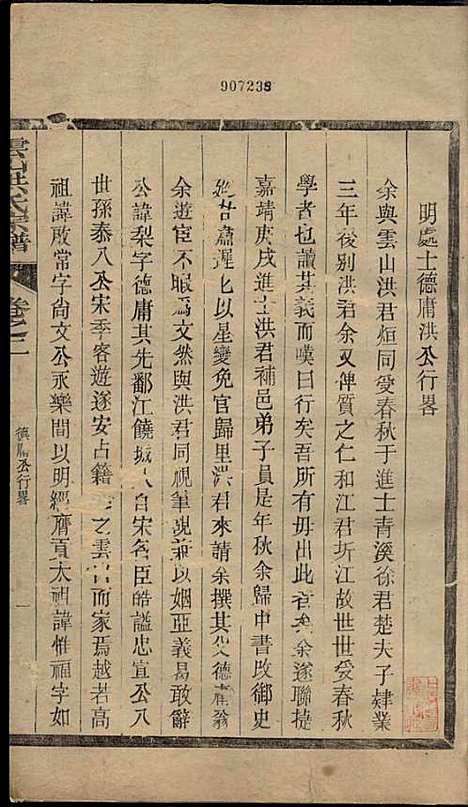 907238
明處士德庸洪公行畧
余與雲山洪君烜同受春秋于進士青溪徐君楚夫子肄業
三年後別洪君余又俾質之仁和江君圻江故世世受春秋
學者也讀其義而嘆曰行矣吾所有毋出此者矣余遂聯捷
嘉靖庚戌進士洪君補邑弟子員是年秋余歸中書改御史
以星變免官歸里洪君來請余撰其父德庸翁
余遊宦不暇爲文然與洪君同視筆硯兼以姻亞義曷敢辭
公諱梨字德庸其先鄱江饒城人自宋名臣皓謚忠宣公八
世孫泰八公宋季客遊遂安占籍之雲山而家焉越若高
祖諱啟常字尚文公永樂間以明經膺貢太祖諱惟福字如
雲山洪氏宗譜
卷之一
德庸公行畧
一